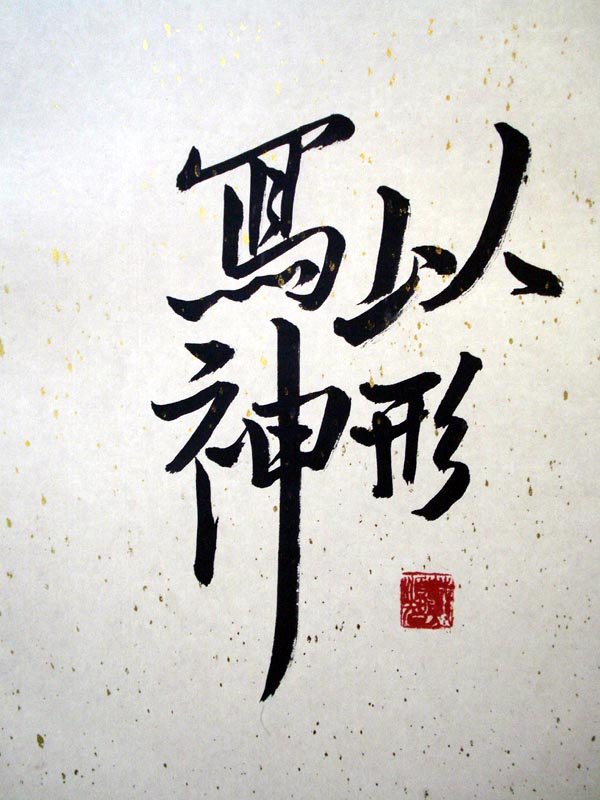 以形
寫神